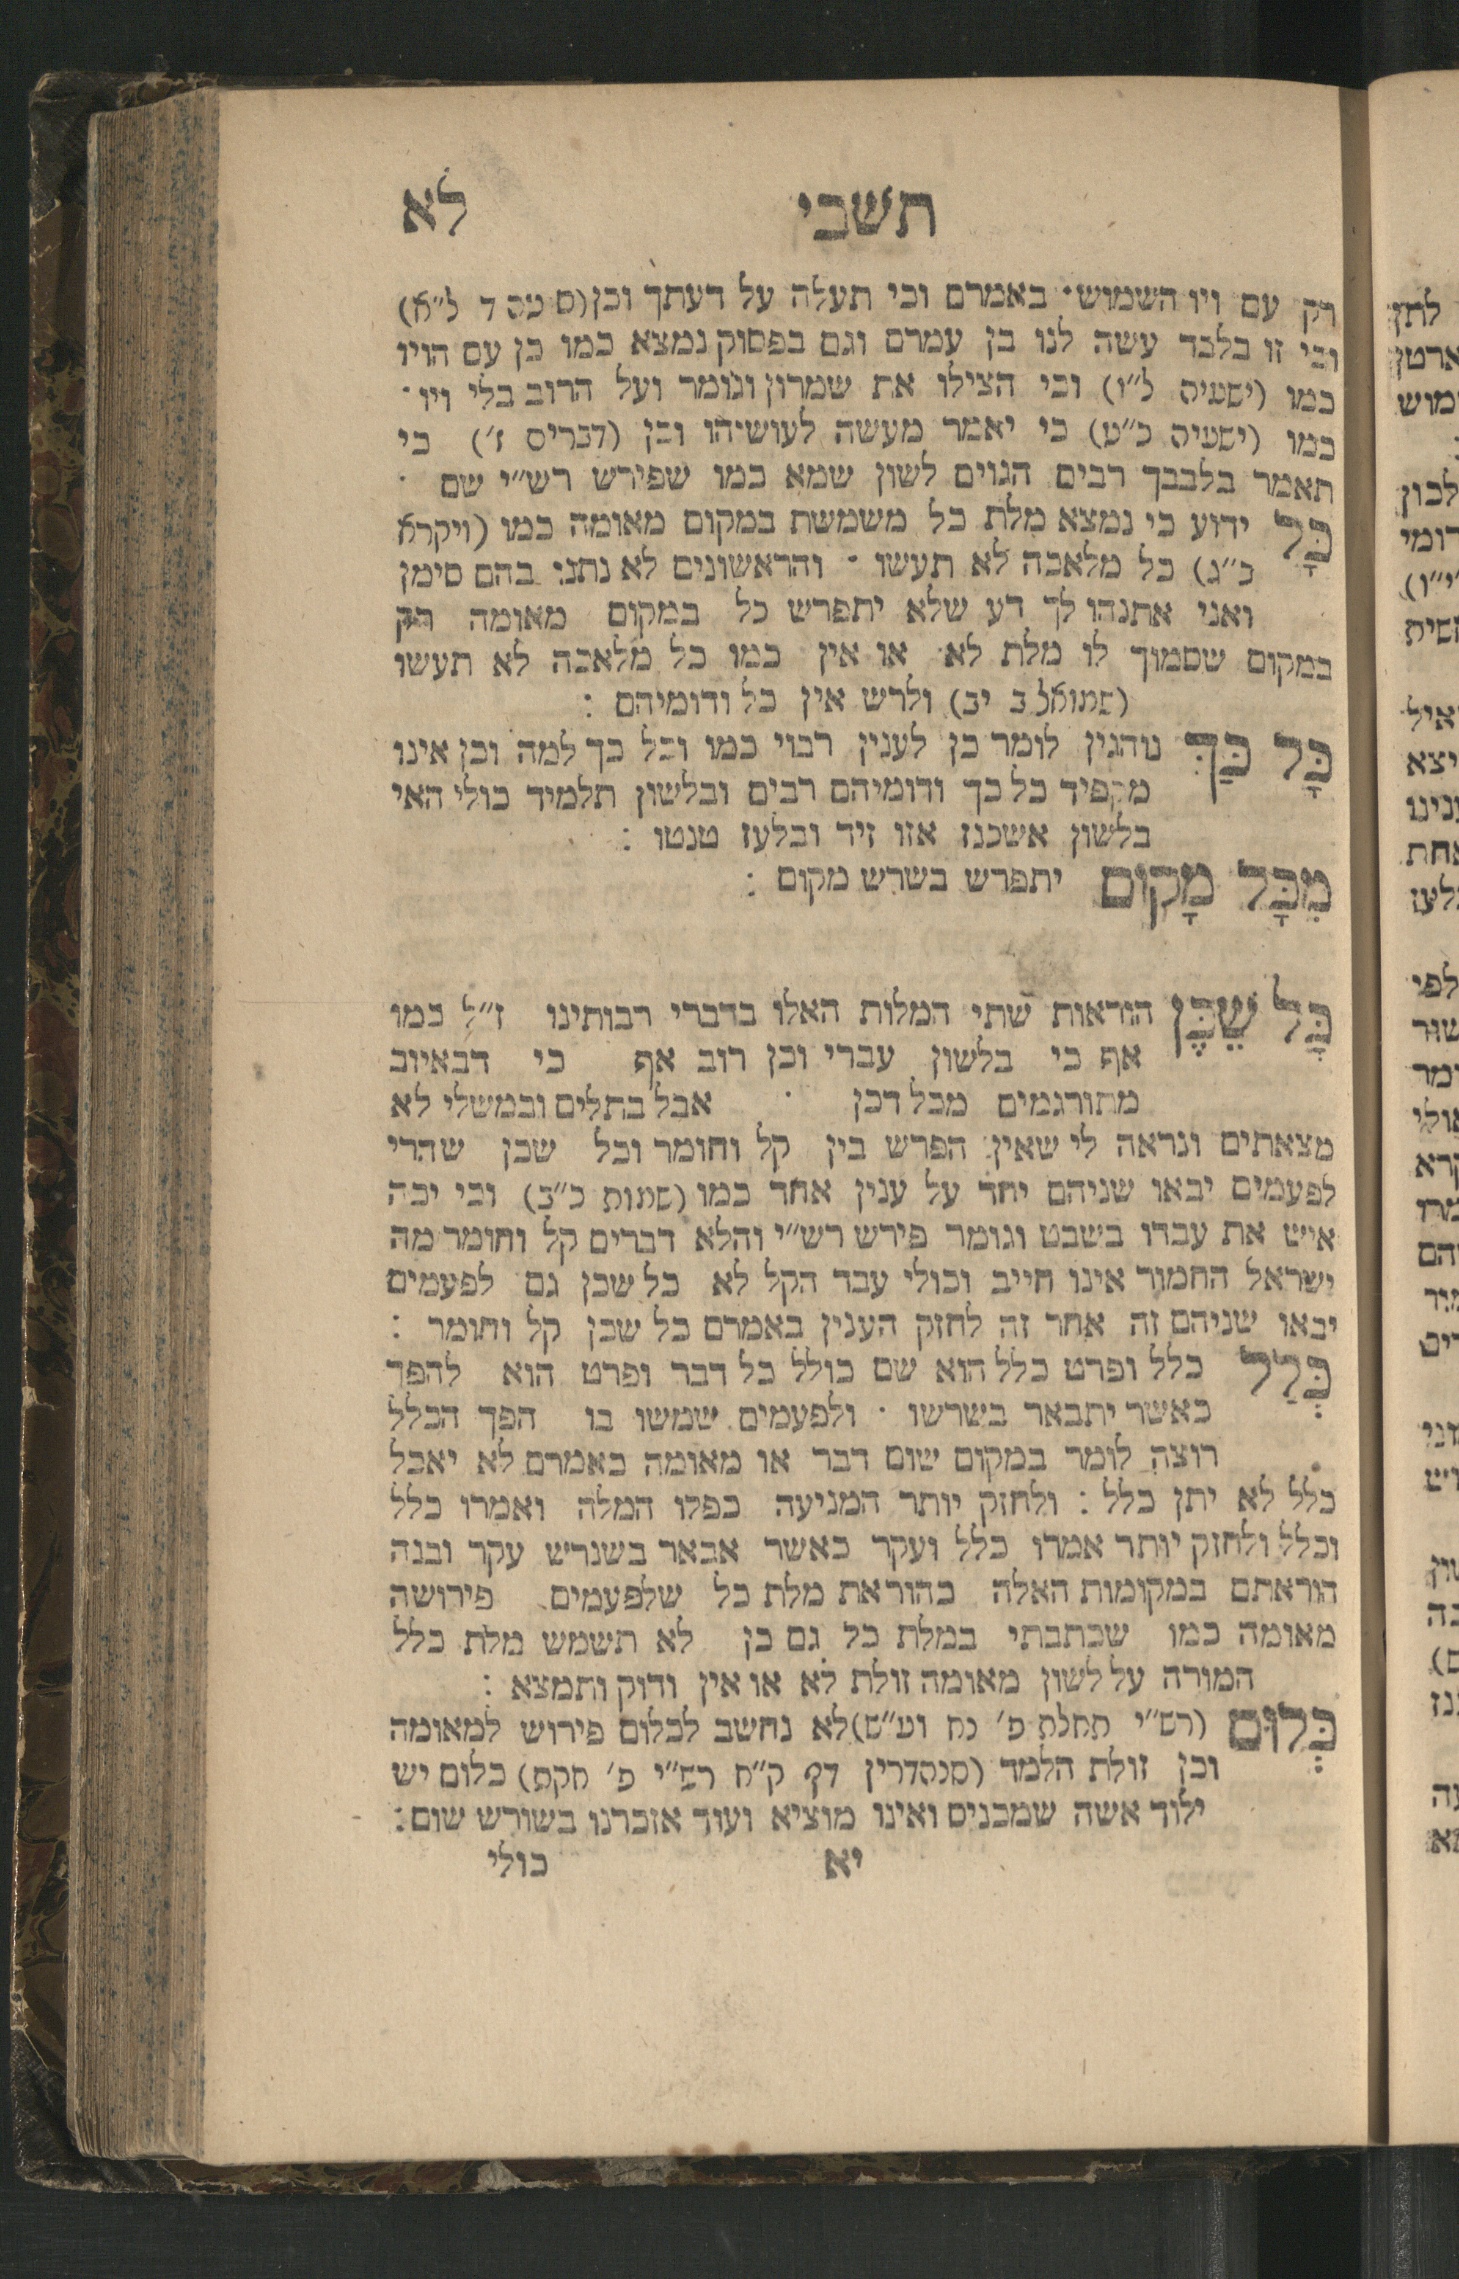 תשבי לא
רק עם ויו השמוש· באמרם וכי תעלה על דעתך וכן (ל״א)
וכי זו בלבד עשה לנו בן עמרם וגם בפסוק נמצא כמו כן עם הויו
כמו (ישעיה ל״ו) וכי הצילו את שמרון וגומר ועל הרוב בלי ויו·
כמו (ישעיה כ״ט) כי יאמר מעשה לעושיהו וכן (דברים ז׳) כי
תאמר בלבבך רבים הגוים לשון שמא כמו שפירש רש״י שם ·
כָּל ידוע כי נמצא מלת כל משמשת במקום מאומה כמו (ויקרא
כ״ג) כל מלאכה לא תעשו · והראשונים לא נתנו בהם סימן
ואני אתנהו לך דע שלא יתפרש כל במקום מאומה רק
במקום שסמוך לו מלת לא או אין כמו כל מלאכה לא תעשו
(שמואל ב יב) ולרש אין כל ודומיהם :
כָּל כַּךְ נוהגין לומר כן לענין רבוי כמו וכל כך למה וכן אינו
מקפיד כל כך ודומיהם רבים ובלשון תלמיד כולי האי
בלשון אשכנז אזו זיר ובלעז טנטו :
מִכָּל מָקוֹם יתפרש בשרש מקום :
כָּל שֶׁכֶּן הוראות שתי המלות האלו בדברי רבותינו ז״ל כמו
אף כי בלשון עברי וכן רוב אף כי דבאיוב
מתורגמים מכל דכן · אבל בתלים ובמשלי לא
מצאתים ונראה לי שאין הפרש בין קל וחומר וכל שכן שהרי
לפעמים יבאו שניהם יחד על ענין אחד כמו (שמות כ״ב) וכי יכה
איש את עבדו בשבט וגומר פירש רש״י והלא דברים קל וחומר מה
ישראל החמור אינו חייב וכולי עבד הקל לא כל שכן גם לפעמים
יבאו שניהם זה אחר זה לחזק הענין באמרם כל שכן קל וחומר :
כְּלַל כלל ופרט כלל הוא שם כולל כל דבר ופרט הוא להפך
כאשר יתבאר בשרשו · ולפעמים שמשו בו הפך הכלל
רוצה לומר במקום שום דבר או מאומה כאמרם לא יאכל
כלל לא יתן כלל : ולחזק יותר המניעה כפלו המלה ואמרו כלל
וכלל ולחזק יותר אמרו כלל ועקר כאשר אבאר בשורש עקר ובנה
הוראתם במקומות האלה כהוראת מלת כל שלפעמים פירושה
מאומה כמו שכתבתי במלת כל גם כן לא תשמש מלת כלל
המורה על לשון מאומה זולת לא או אין ודוק ותמצא :
כְּלוּם (רש״י תחלת פ׳ נח וע״ש) לא נחשב לכלום פירוש למאומה
וכן זולת הלמד (סנהדרין דף ק״ח רש״י פ׳ חקת) כלום יש
ילוד אשה שמכניס ואינו מוציא ועוד אזכרנו בשורש שום :
יא כולי